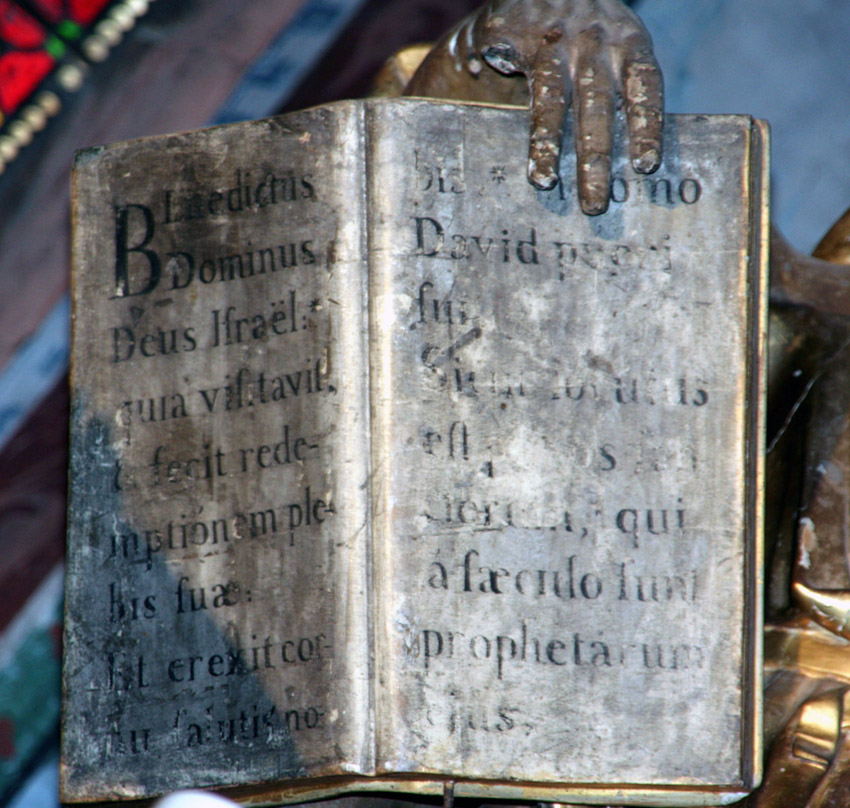 Benedictus
Dominus
Deus Iſraël:*
quia viſitavit,
& fecit rede-
mptiónem ple-
bis ſuæ:
Et eréxit cor-
nu ſalutis no-
bis * domo
David púeri
ſui.
Sicut locutus
eſt
qui
á ſæculo ſunt
prophetárum
ejus.